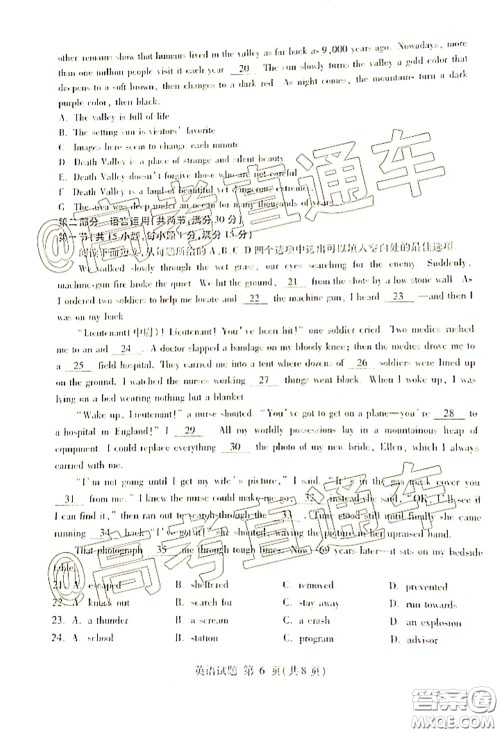 other remains show that humans lived in the valley as far back as 9,000 years ago. Nowadays, more
than one million people visit it each year. 20 The sun slowly turns the valley a gold color that
deepens to a soft brown, then changes to a dark red. As night comes, the mountains turn a dark
purple color, then black.
A. The valley is full of life
B. The setting sun is visitors' favorite
C. Images here seem to change each minute
D. Death Valley is a place of strange and silent beauty
E. Death Valley doesn't forgive those who are not careful
F. Death Valley is a land of beautiful yet dangerous extremes
G. The area was deep under an ocean for many thousands of years
第二部分 语言运用(共两节,满分 30 分)
第一节(共 15 小题,每小题 1 分,满分 15 分)
阅读下面短文,从每题所给的 A、B、C、D 四个选项中选出可以填入空白处的最佳选项。
We walked slowly through the wet grass, our eyes searching for the enemy. Suddenly,
machine-gun fire broke the quiet. We hit the ground, 21 from the shots by a low stone wall. As
I ordered two soldiers to help me locate and 22 the machine gun, I heard 23 —and then I
was on my back.
"Lieutenant(中尉)! Lieutenant! You've been hit!" one soldier cried. Two medics rushed
me to an aid 24 . A doctor slapped a bandage on my bloody knee; then the medics drove me to
a 25 field hospital. They carried me into a tent where dozens of 26 soldiers were lined up
on the ground. I watched the nurses working 27 things went black. When I woke up, I was
lying on a bed wearing nothing but a blanket.
"Wake up, Lieutenant!" a nurse shouted. "You've got to get on a plane—you're 28 to
a hospital in England!" I 29 . All my worldly possessions lay in a mountainous heap of
equipment. I could replace everything 30 the photo of my new bride, Ellen, which I always
carried with me.
"I'm not going until I get my wife's picture," I said. "It's in the gas mask cover you
31 from me." I knew the nurse could make me go, 32 instead she said, "OK, I'll see if
I can find it," then ran out to search through the 33 . Time stood still until finally she came
running 34 back. "I've got it!" she shouted, waving the picture in her upraised hand.
That photograph 35 me through tough times. Now—69 years later—it sits on my bedside
table.
21. A. escaped B. sheltered C. removed D. prevented
22. A. knock out B. search for C. stay away D. run towards
23. A. a thunder B. a scream C. a crash D. an explosion
24. A. school B. station C. program D. advisor
英语试题 第 6 页(共 8 页)
@高考直通车
@高考直通车
答案圈
MXQE.COM